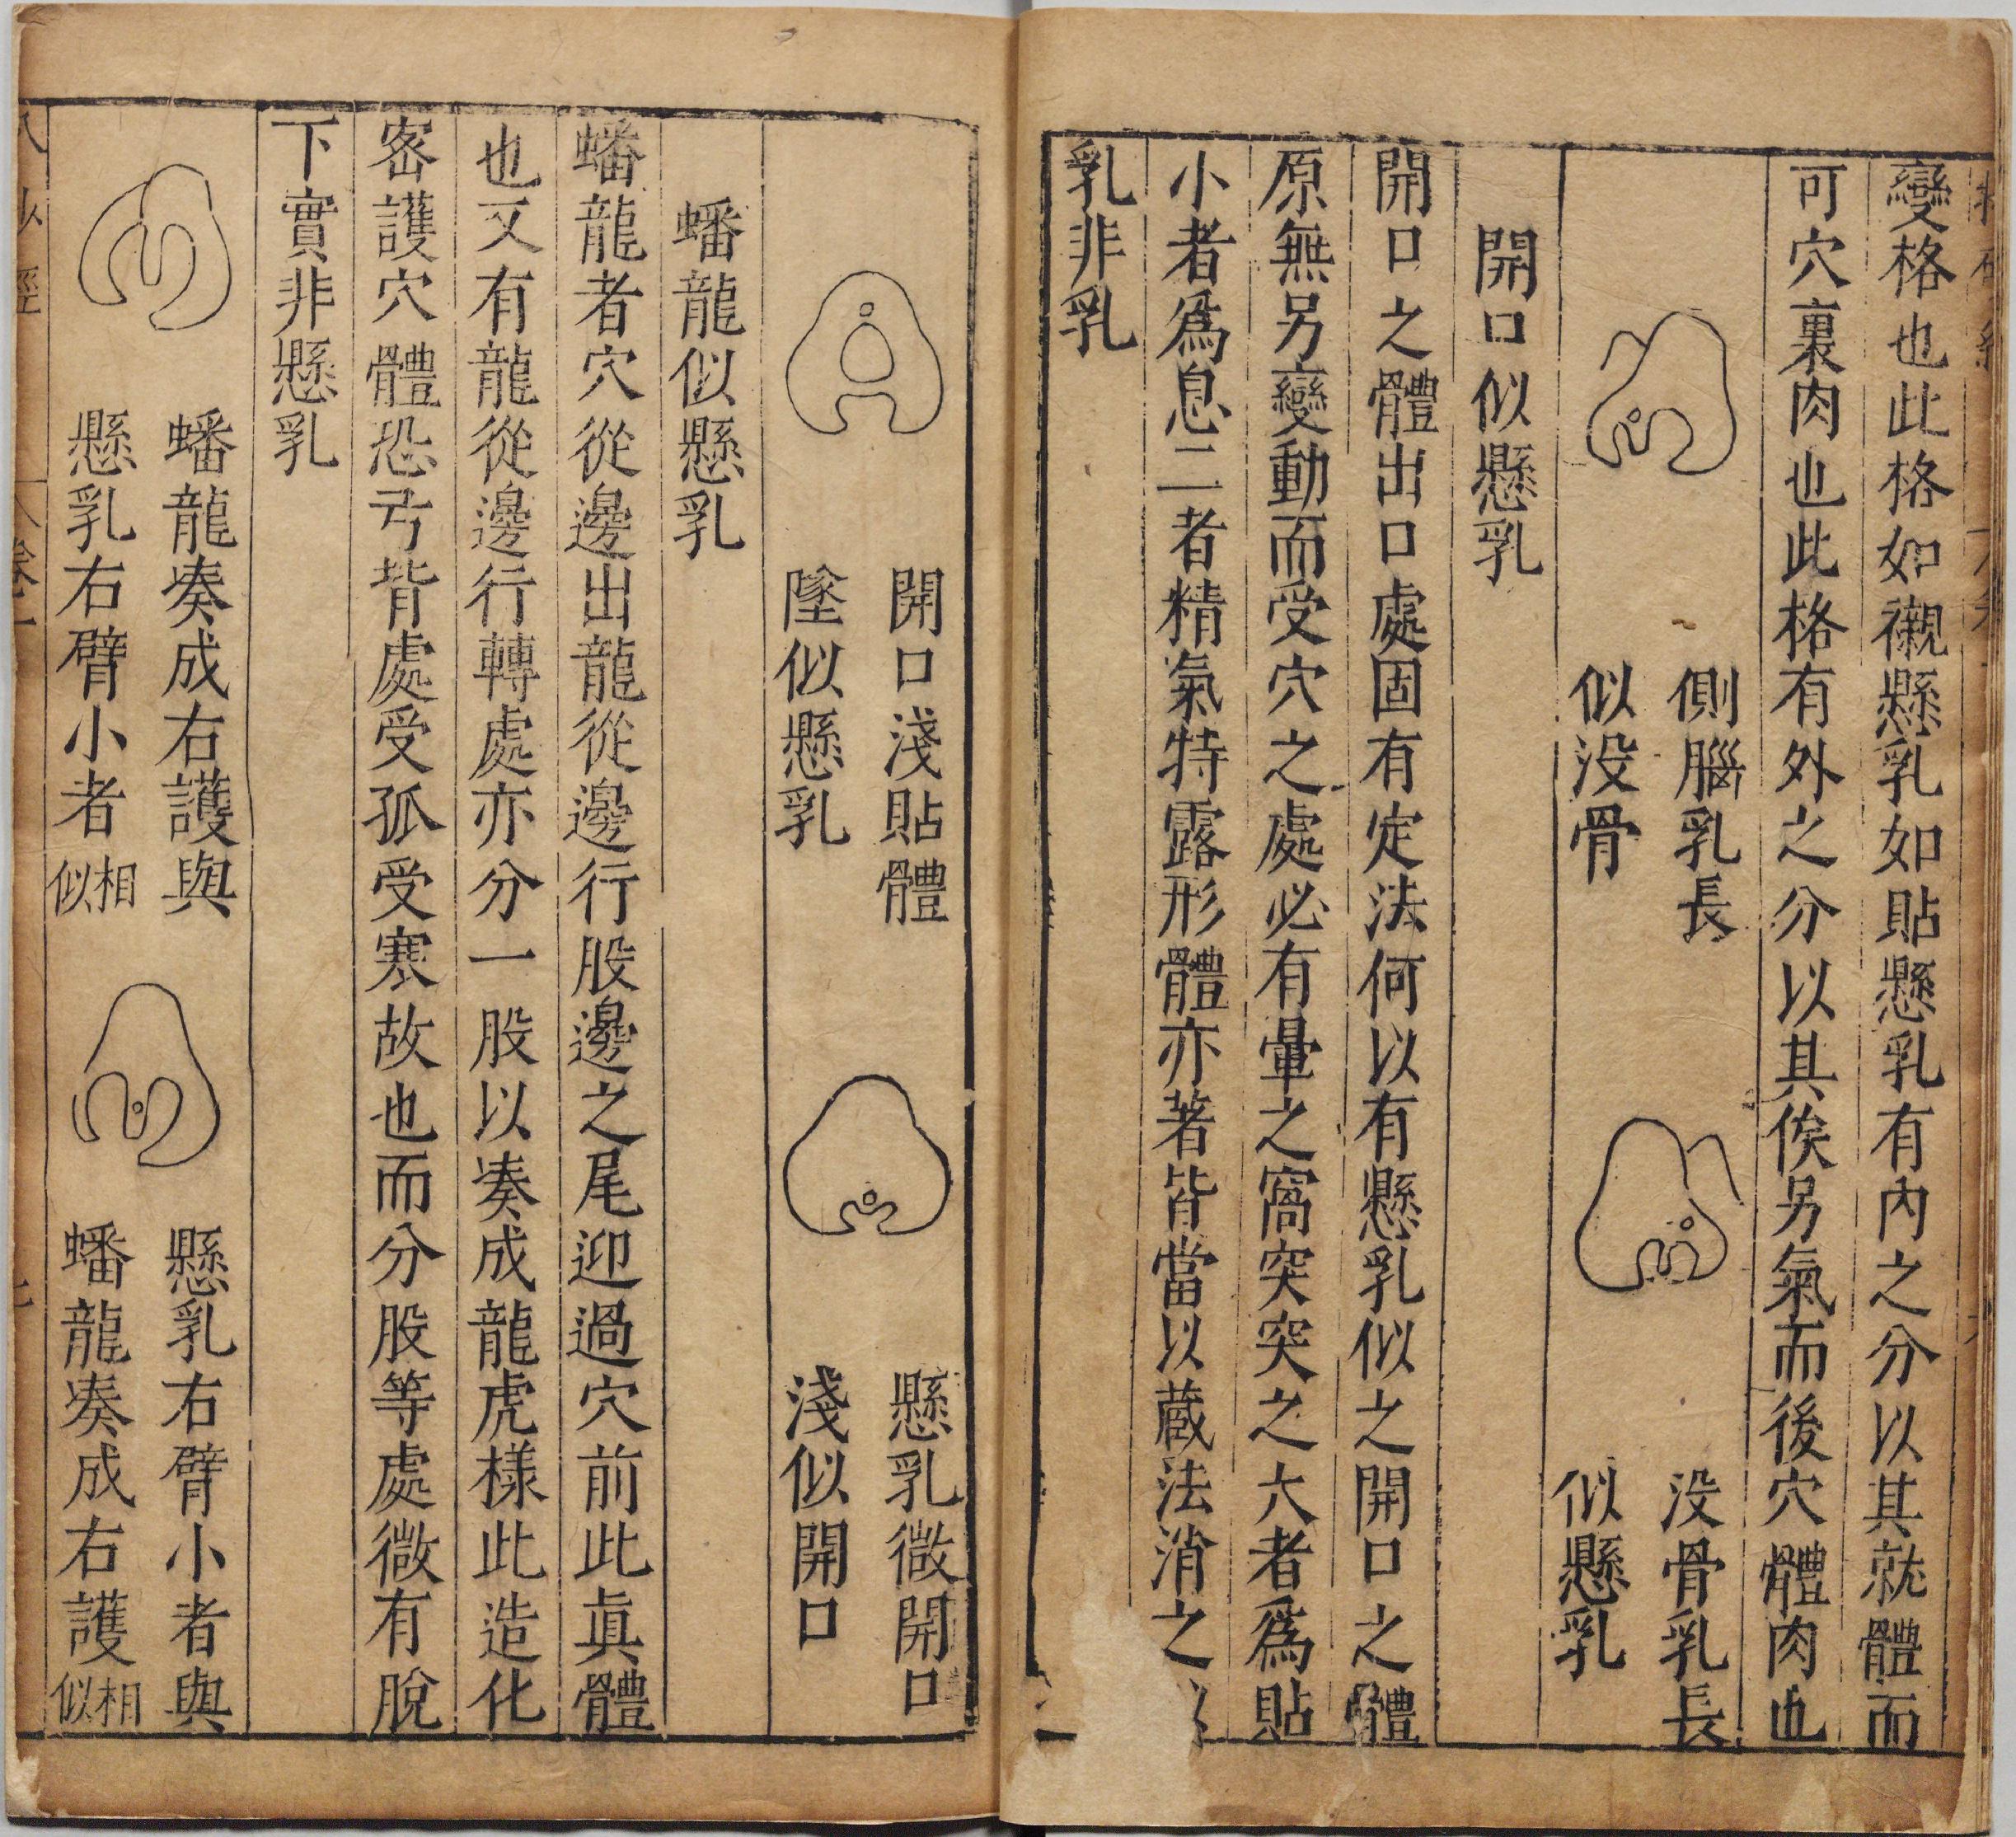 變格也此格如襯懸乳如貼懸乳有內之分以其就體而
可穴裏肉也此格有外之分以其俟另氣而後穴體肉也
側腦乳長
似没骨
没骨乳長
似懸乳
開口似懸乳
開口之體出口處固有定法何以有懸乳似之開口之體
原無另變動而受穴之處必有暈之窩突突之大者爲貼
小者爲息二者精氣特露形體亦著皆當以蔵法消之
乳非乳
開口淺貼體
墜似懸乳
懸乳微開口
淺似開口
蟠龍似懸乳
蟠龍者穴從邊出龍從邊行股邊之尾迎過穴前此眞體
也又有龍從邊行轉處亦分一股以凑成龍虎樣此造化
宻護穴體恐丂背處受孤受寒故也而分股等處微有脫
下實非懸乳
蟠龍凑成右護與
懸乳右臂小者相似
懸乳右臂小者與
蟠龍凑成右護相似